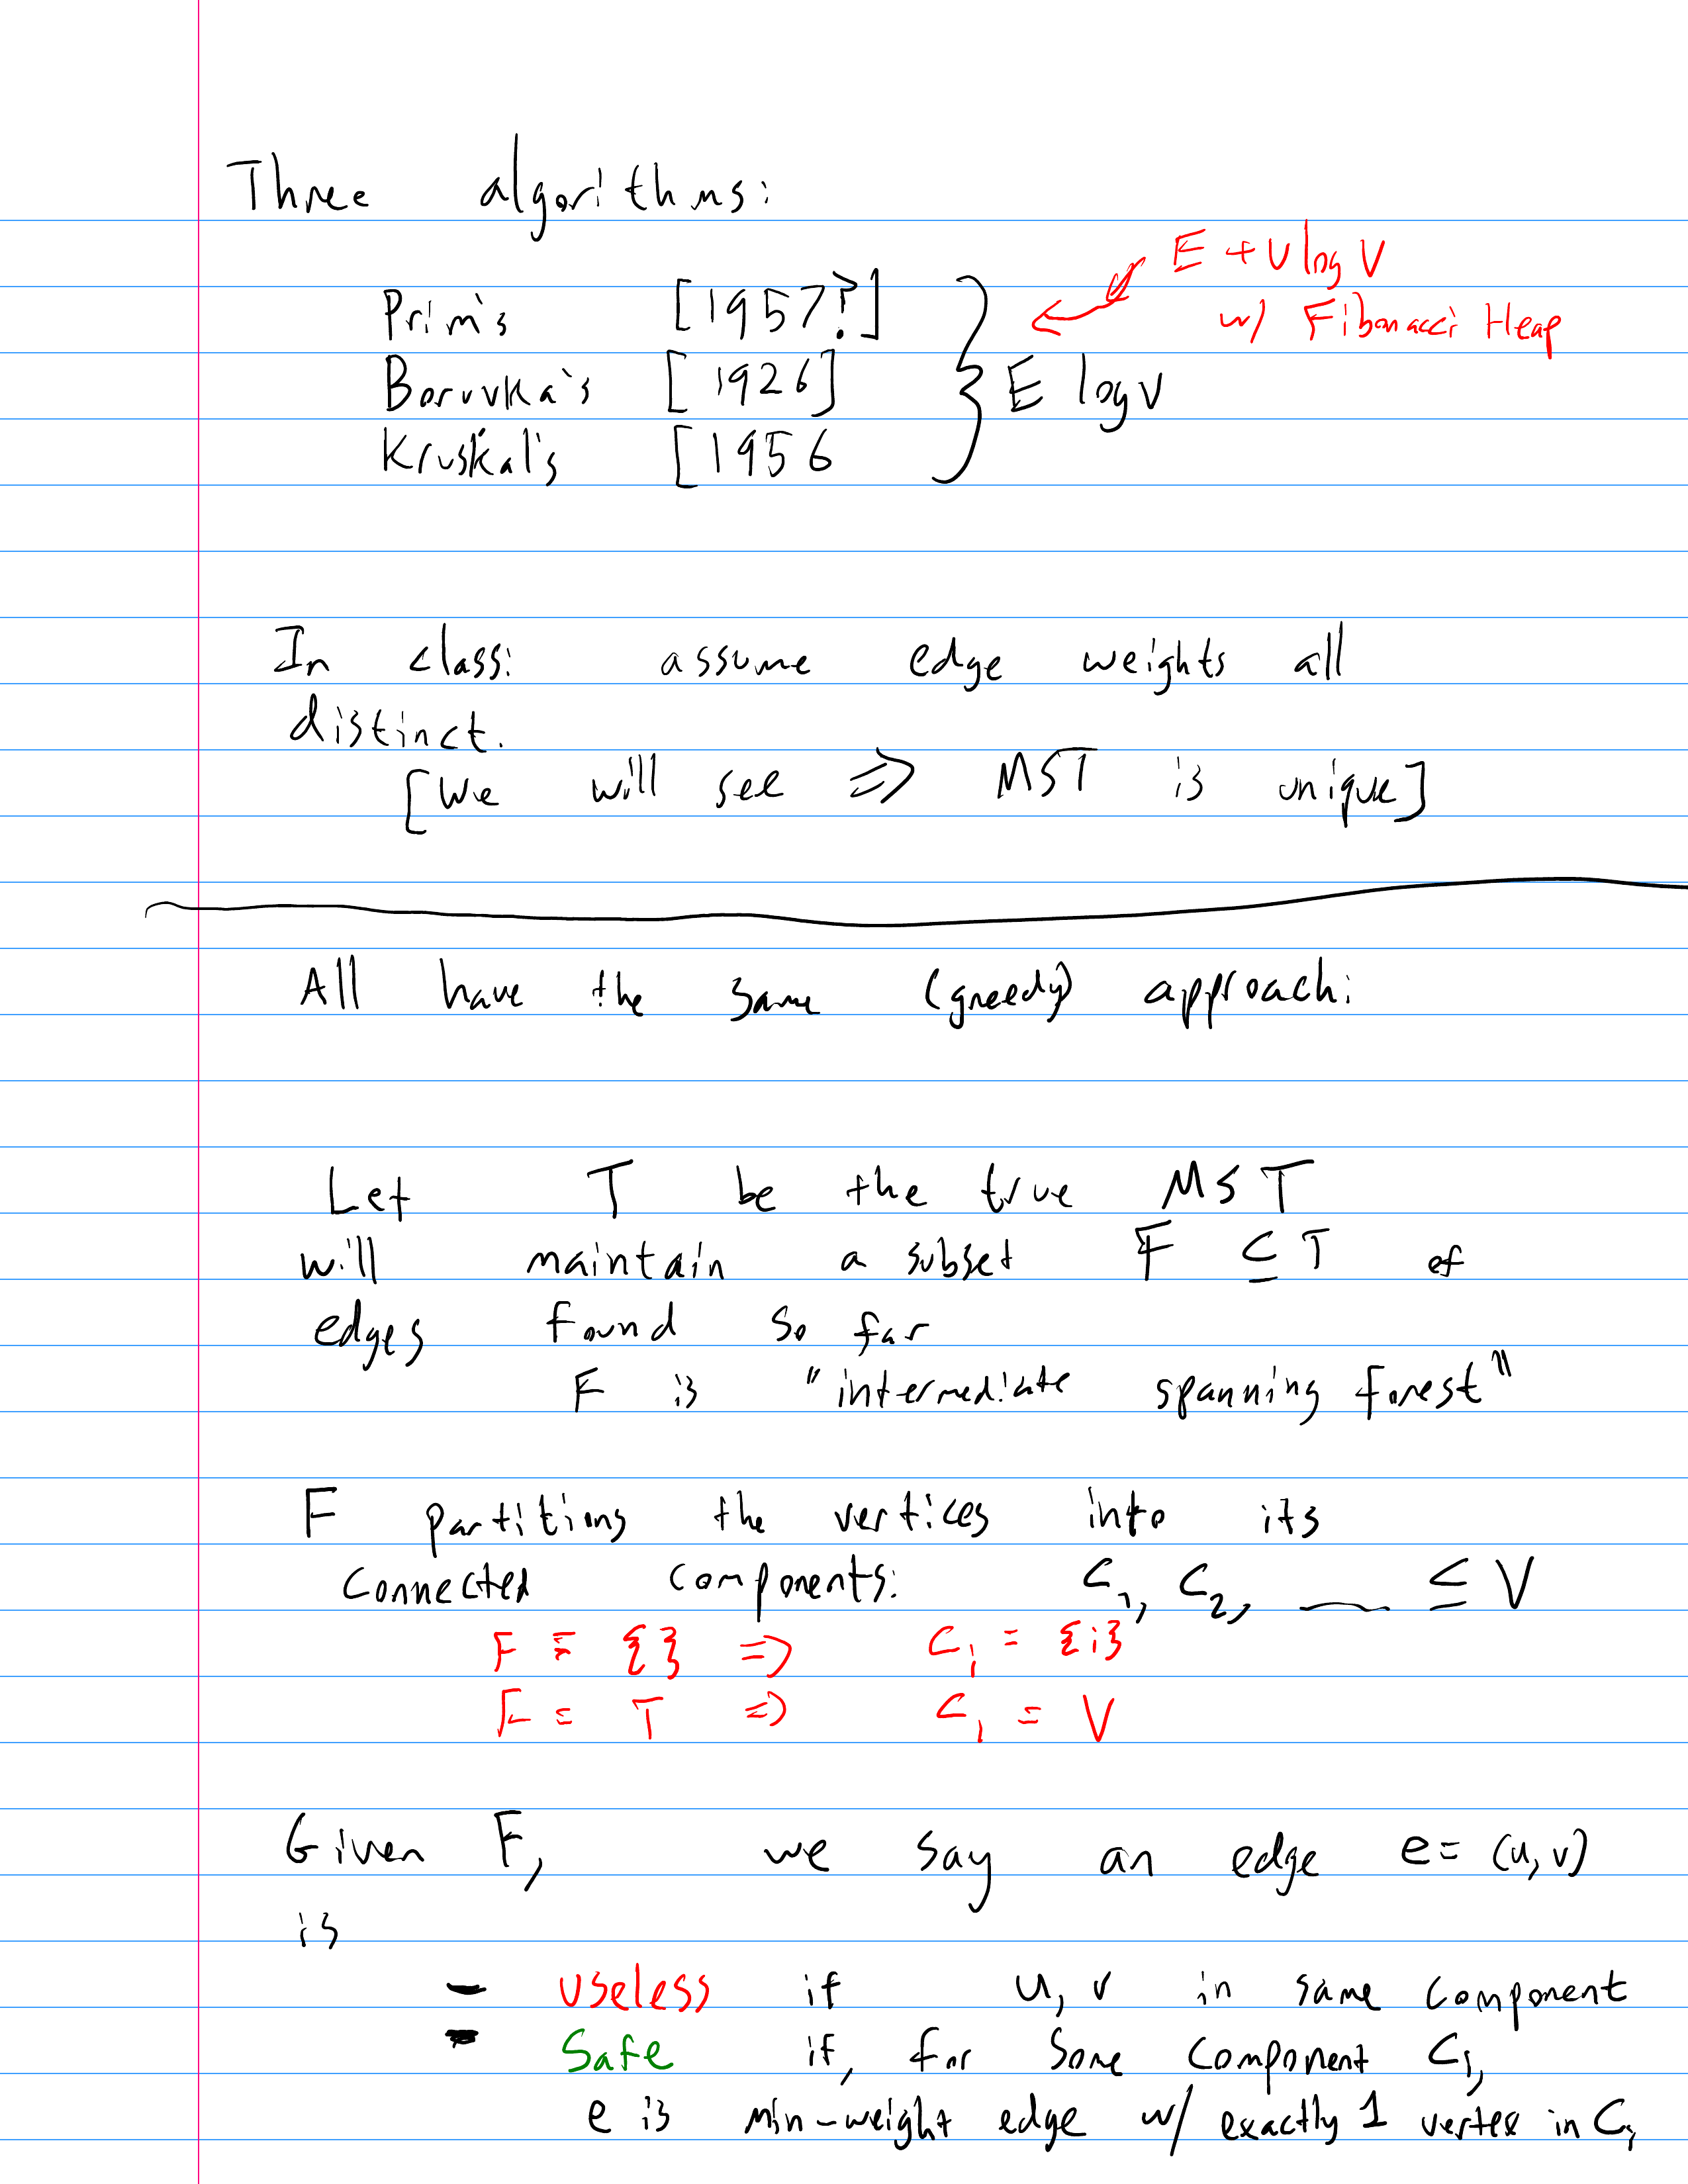 Three algorithms:
E + V log V
w/ Fibonacci Heap
Prim's [1957?]
Boruvka's [1926] } E log V
Kruskal's [1956
In class: assume edge weights all
distinct.
[We will see ⇒ MST is unique]
All have the same (greedy) approach:
Let T be the true MST
will maintain a subset F ⊆ T of
edges found so far
F is "intermediate spanning forest"
F partitions the vertices into its
connected components: C₁, C₂, — ⊆ V
F = {} ⇒ Cᵢ = {i}
F = T ⇒ C₁ = V
Given F, we say an edge e = (u, v)
is
- useless if u, v in same component
- Safe if, for some component Cᵢ,
e is min-weight edge w/ exactly 1 vertex in Cᵢ